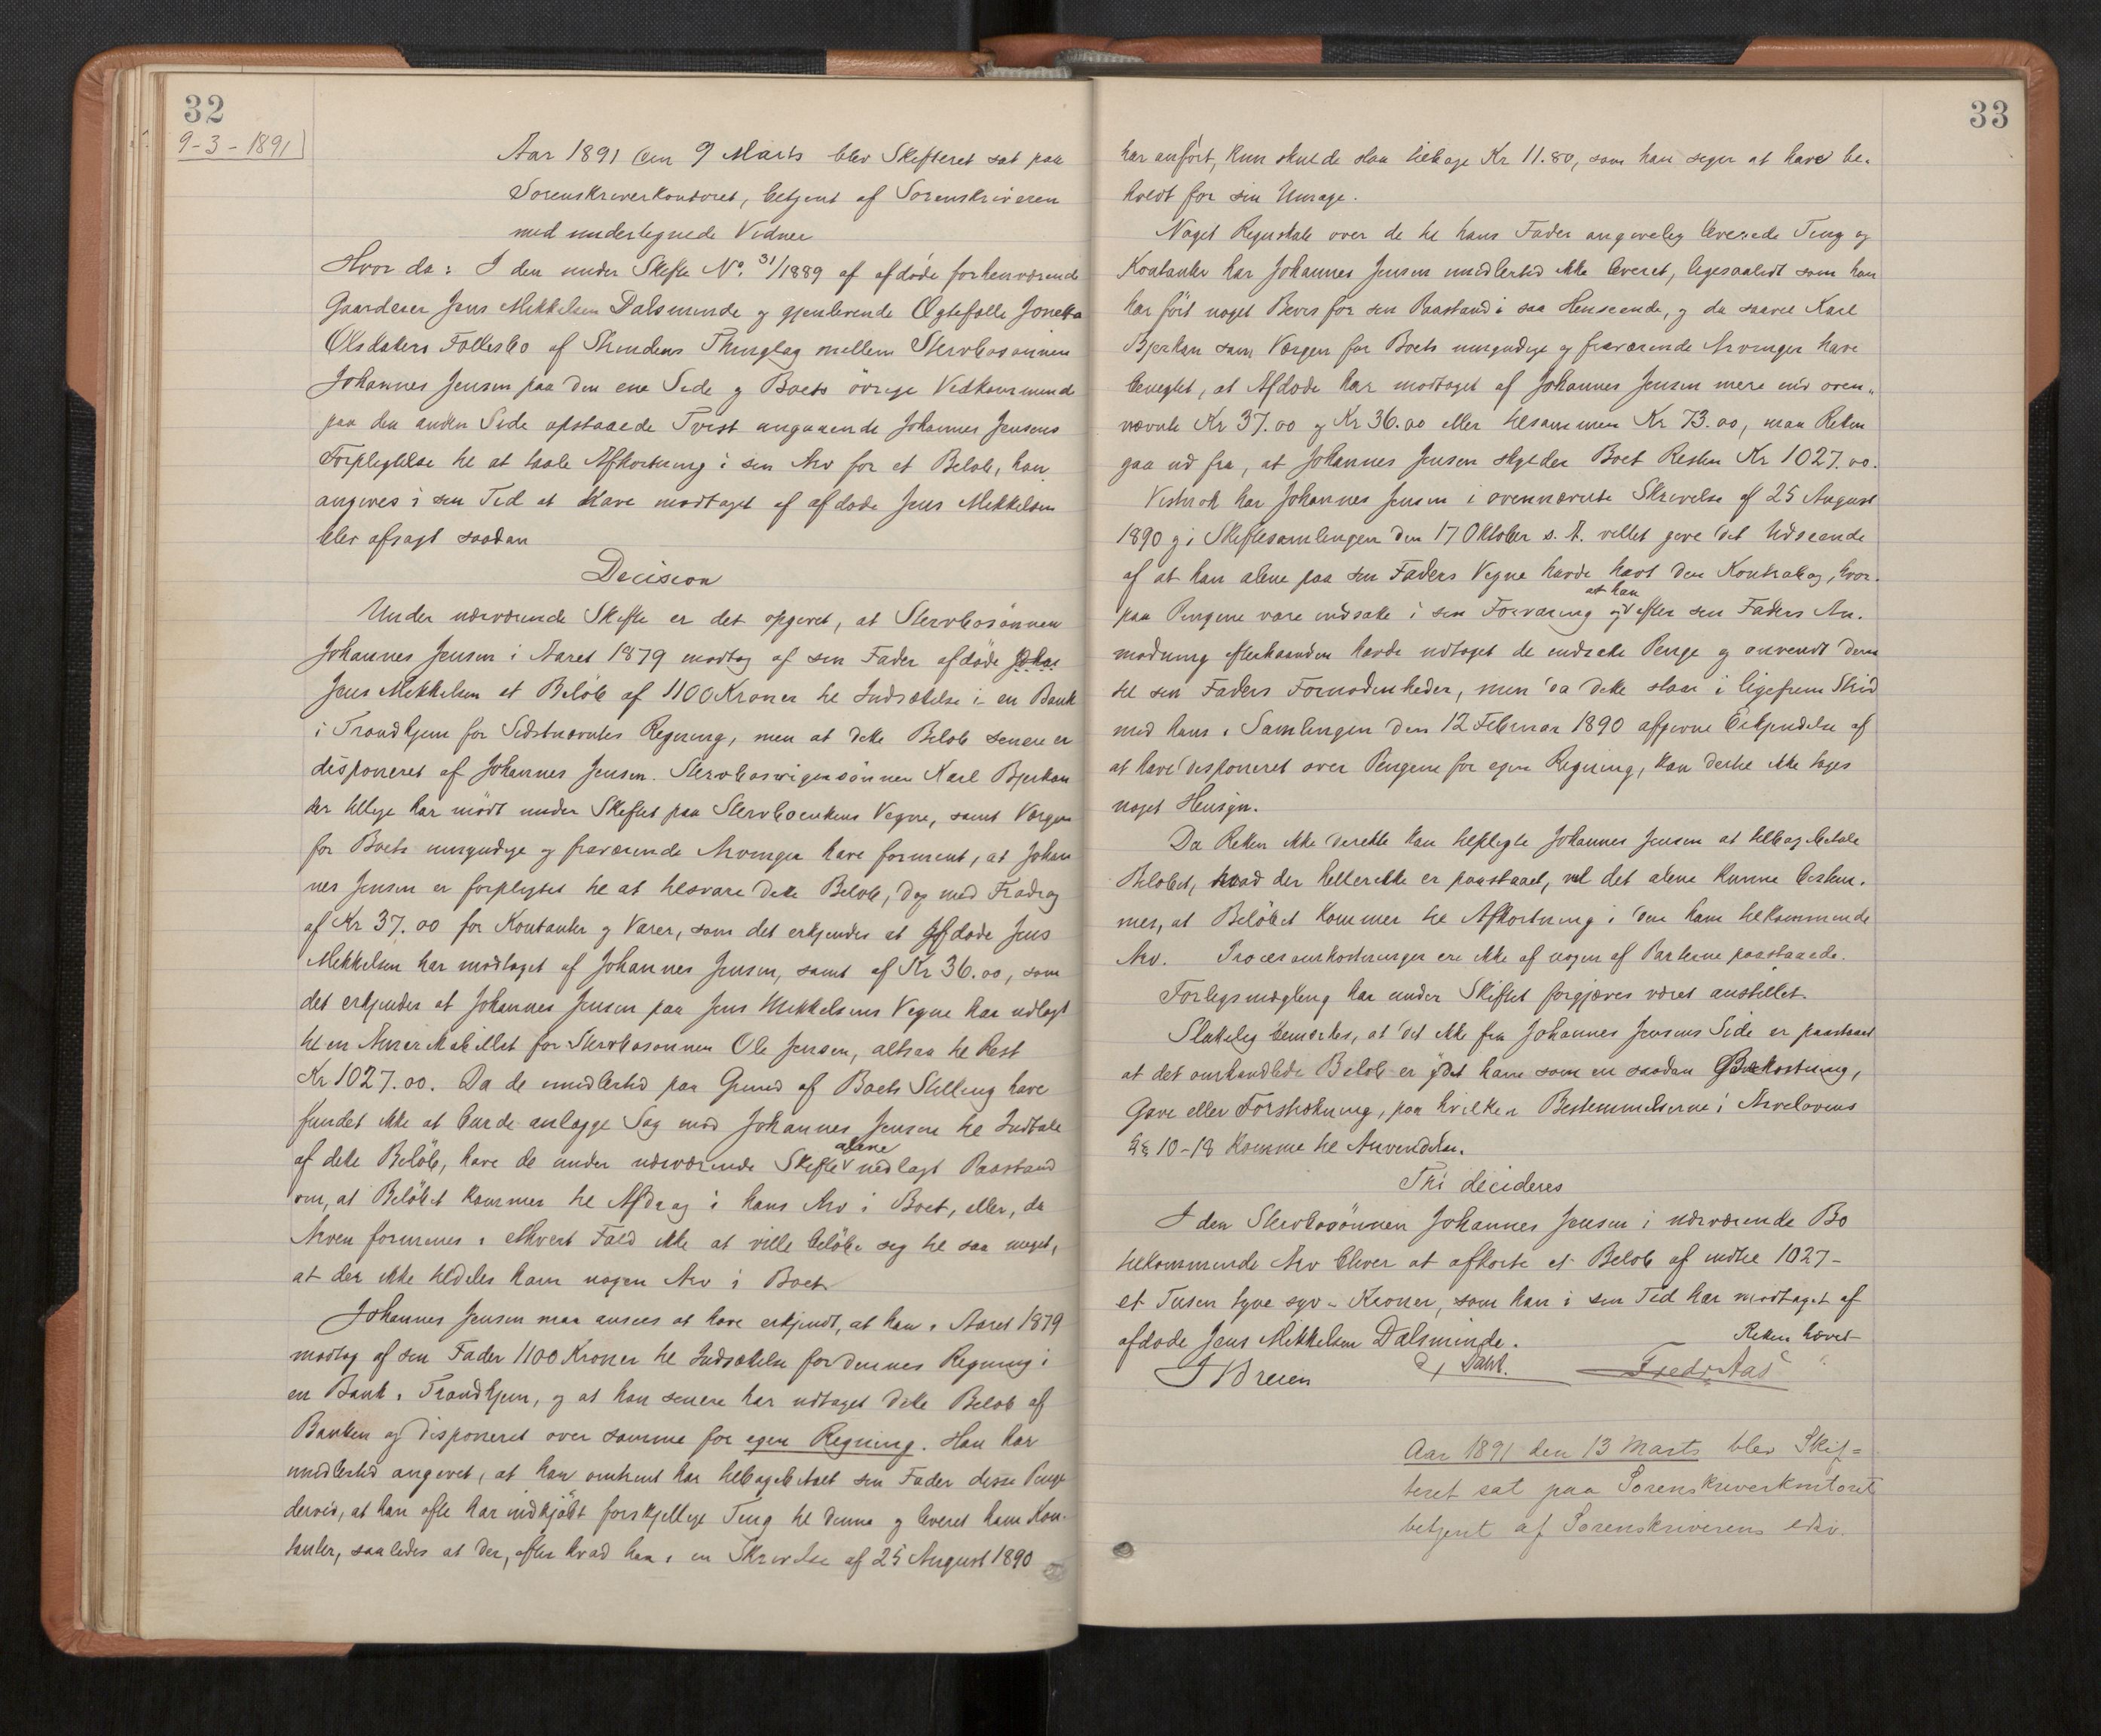 32
9-3-1891
Aar 1891 den 9 Marts blev Skifteret sat paa
Sorenskriverkontoret, betjent af Sorenskriveren
med undertegnede Vidner
Hvor da: I den under Skifte No. 31/1889 af afdøde forhenværende
Gaardeier Jens Mikkelsen Dalsminde og gjenlevende Ægtefælle Jonetta
Olsdatters Fællesbo af Thinglag mellem Stervbosønnen
Johannes Jensen paa den ene Side og Boets övrige Vedkommende
paa den anden Side opstaaede Tvist angaaende Johannes Jensens
Forpligtelse til at taale Afkortning i sin Arv for et Beløb, han
angives i sin Tid at have modtaget af afdøde Jens Mikkelsen
blev afsagt saadan
Decision
Under nærværende Skifte er det opgivet, at Stervbosønnen
Johannes Jensen i Aaret 1879 modtog af sin Fader afdøde Johan
Jens Mikkelsen et Beløb af 1100 Kroner til Indsættelse i en Bank
i Trondhjem for Sidstnævntes Regning, men at dette Beløb senere er
disponeret af Johannes Jensen. Stervbosvigersönnen Karl Bjerkan
der tillige har mödt under Skiftet paa Stervboenkens Vegne, samt Værgen
for Boets umyndige og fraværende Arvinger have forment, at Johan
nes Jensen er forpligtet til at tilsvare dette Beløb, dog med Fradrag
af Kr 37.00 for Kontanter og Varer, som det erkjendes at Afdøde Jens
Mikkelsen har modtaget af Johannes Jensen, samt af Kr 36.00, som
det erkjendes at Johannes Jensen paa Jens Mikkelsens Vegne har udlagt
til en Amerikabillet for Stervbosønnen Ole Jensen, altsaa til Rest
Kr 1027.00. Da de imidlertid paa Grund af Boets Stilling have
fundet ikke at burde anlægge Sag mod Johannes Jensen til Indtale
af dette Belöb, have de under nærværende Skifte alene nedlagt Paastand
om, at Belöbet kommer til Afdrag i hans Arv i Boet, eller, da
Arven formenes i ethvert Fald ikke at ville belöbe sig til saa meget,
at der ikke tildeles ham nogen Arv i Boet.
Johannes Jensen maa ansees at have erkjendt, at han i Aaret 1879
modtog af sin Fader 1100 Kroner til Indsættelse for dennes Regning i
en Bank i Trondhjem, og at han senere har udtaget dette Beløb af
Banken og disponeret over samme for egen Regning. Han har
imidlertid angivet, at han omtrent har tilbagebetalt sin Fader disse Penge
derved, at han ofte har indkjöbt forskjellige Ting til denne og leveret ham Kon-
tanter, saaledes at der, efter hvad han i en Skrivelse af 25 August 1890
33
har anfört, kun skulde staa tilbage Kr 11.80, som han siger at have be-
holdt for sin Umage.
Noget Regnskab over de til hans Fader angivelig leverede Ting og
Kontanter har Johannes Jensen imidlertid ikke leveret, ligesaalidt som han
har fört noget Bevis for sin Paastand i saa Henseende, og da saavel Karl
Bjerkan som Værgen for Boets umyndige og fraværende Arvinger have
benegtet, at Afdøde har modtaget af Johannes Jensen mere end oven-
nævnte Kr 37.00 og Kr 36.00 eller tilsammen Kr 73.00, maa Retten
gaa ud fra, at Johannes Jensen skylder Boet Resten Kr 1027.00.
Vistnok har Johannes Jensen i ovennævnte Skrivelse af 25 August
1890 og i Skiftesamlingen den 17 Oktober s. A. villet give det Udseende
af at han alene paa sin Faders Vegne havde havt den Kontrabog, hvor-
paa Pengene vare indsatte i sin Forvaring og at han efter sin Faders An-
modning efterhaanden havde udtaget de indsatte Penge og anvendt dem
til sin Faders Fornødenheder, men da dette staar i ligefrem Strid
med hans i Samlingen den 12 Februar 1890 afgivne Erkjendelse af
at have disponeret over Pengene for egen Regning, kan dertil ikke tages
noget Hensyn.
Da Retten ikke direkte kan tilpligte Johannes Jensen at tilbagebetale
Beløbet, hvad der heller ikke er paastaaet, vil det alene kunne bestem-
mes, at Belöbet kommer til Afkortning i den ham tilkommende
Arv. Procesomkostninger ere ikke af nogen af Parterne paastaaede.
Forligsmægling har under Skiftet forgjæves været anstillet.
Sluttelig bemærkes, at det ikke fra Johannes Jensens Side er paastaaet
at det omhandlede Beløb er ydet ham som en saadan Bekostning,
Gave eller Forstrækning, paa hvilken Bestemmelserne i Arvelovens
§§ 10-18 komme til Anvendelse.
Thi decideres
I den Stervbosönnen Johannes Jensen i nærværende Bo
tilkommende Arv bliver at afkorte et Beløb af indtil 1027-
et Tusen tyve syv - Kroner, som han i sin Tid har modtaget af
afdøde Jens Mikkelsen Dalsminde.
Retten hævet
Dahl. Fredr Aas
Aar 1891 den 13 Marts blev Skif=
teret sat paa Sorenskriverkontoret
betjent af Sorenskriverens edsv.